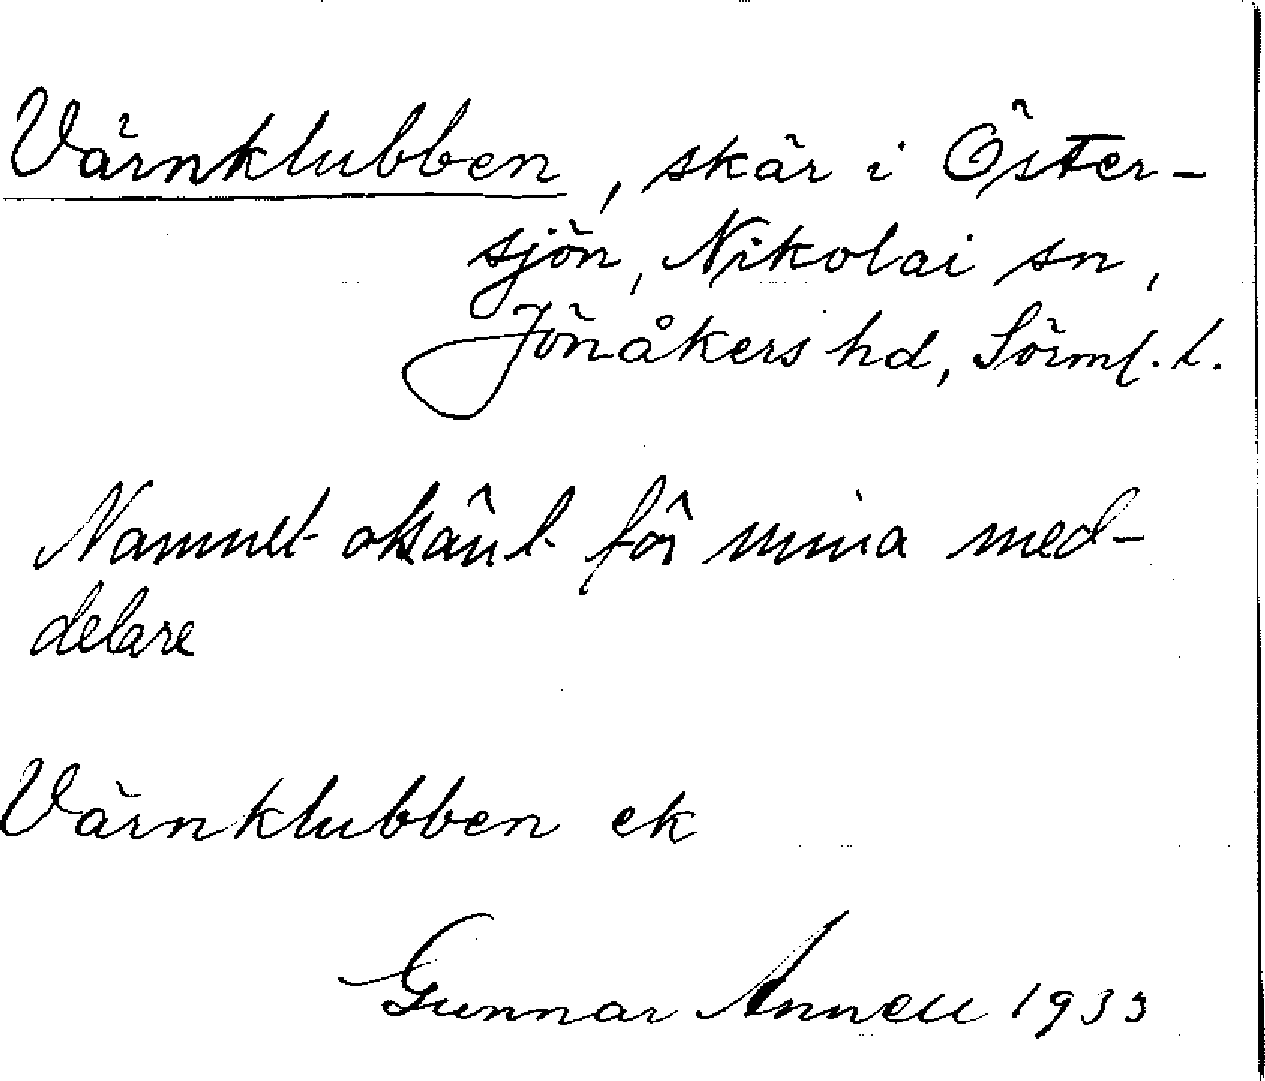 Värnklubben, skär i Öster-
sjön, Nikolai sn,
Jönåkers hd, Sörml. l.
Namnet okänt för mina med-
delare
Värnklubben ek
Gunnar Annell 1933